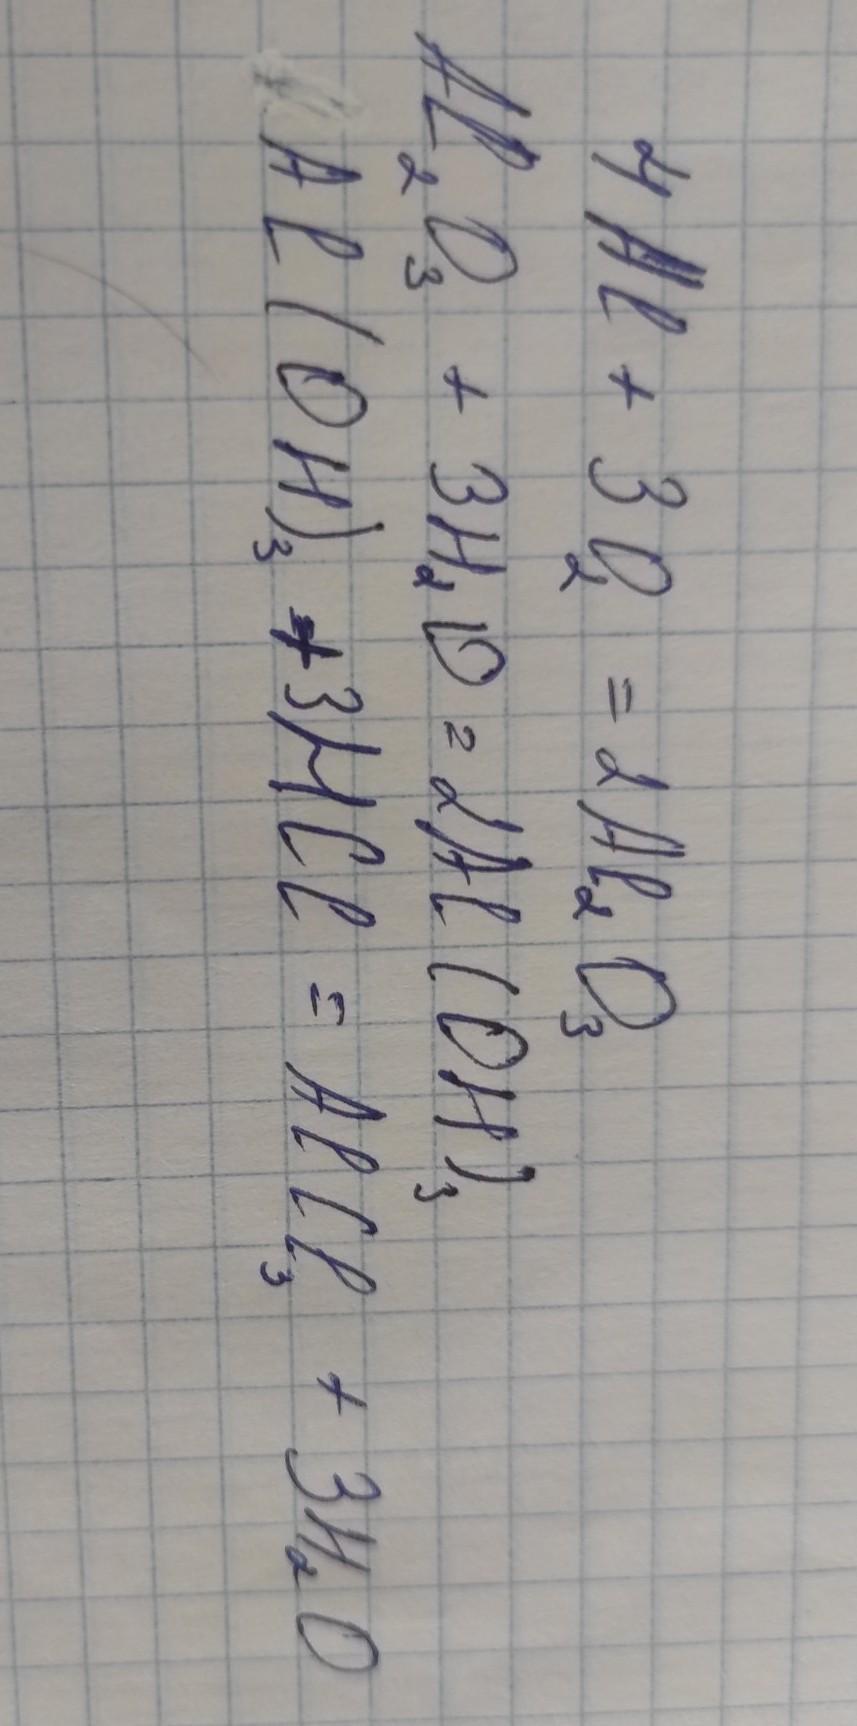 4Al + 3O₂ = 2Al₂O₃
Al₂O₃ + 3H₂O = 2Al(OH)₃
Al(OH)₃ + 3HCl = AlCl₃ + 3H₂O